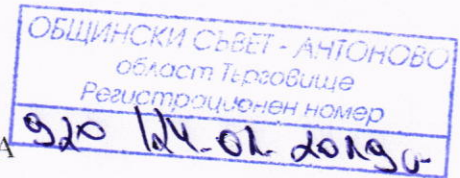 ОБЩИНСКИ СЪВЕТ - АНТОНОВО
област Търговище
Регистрационен номер
А 920 / 24.01.2019г.